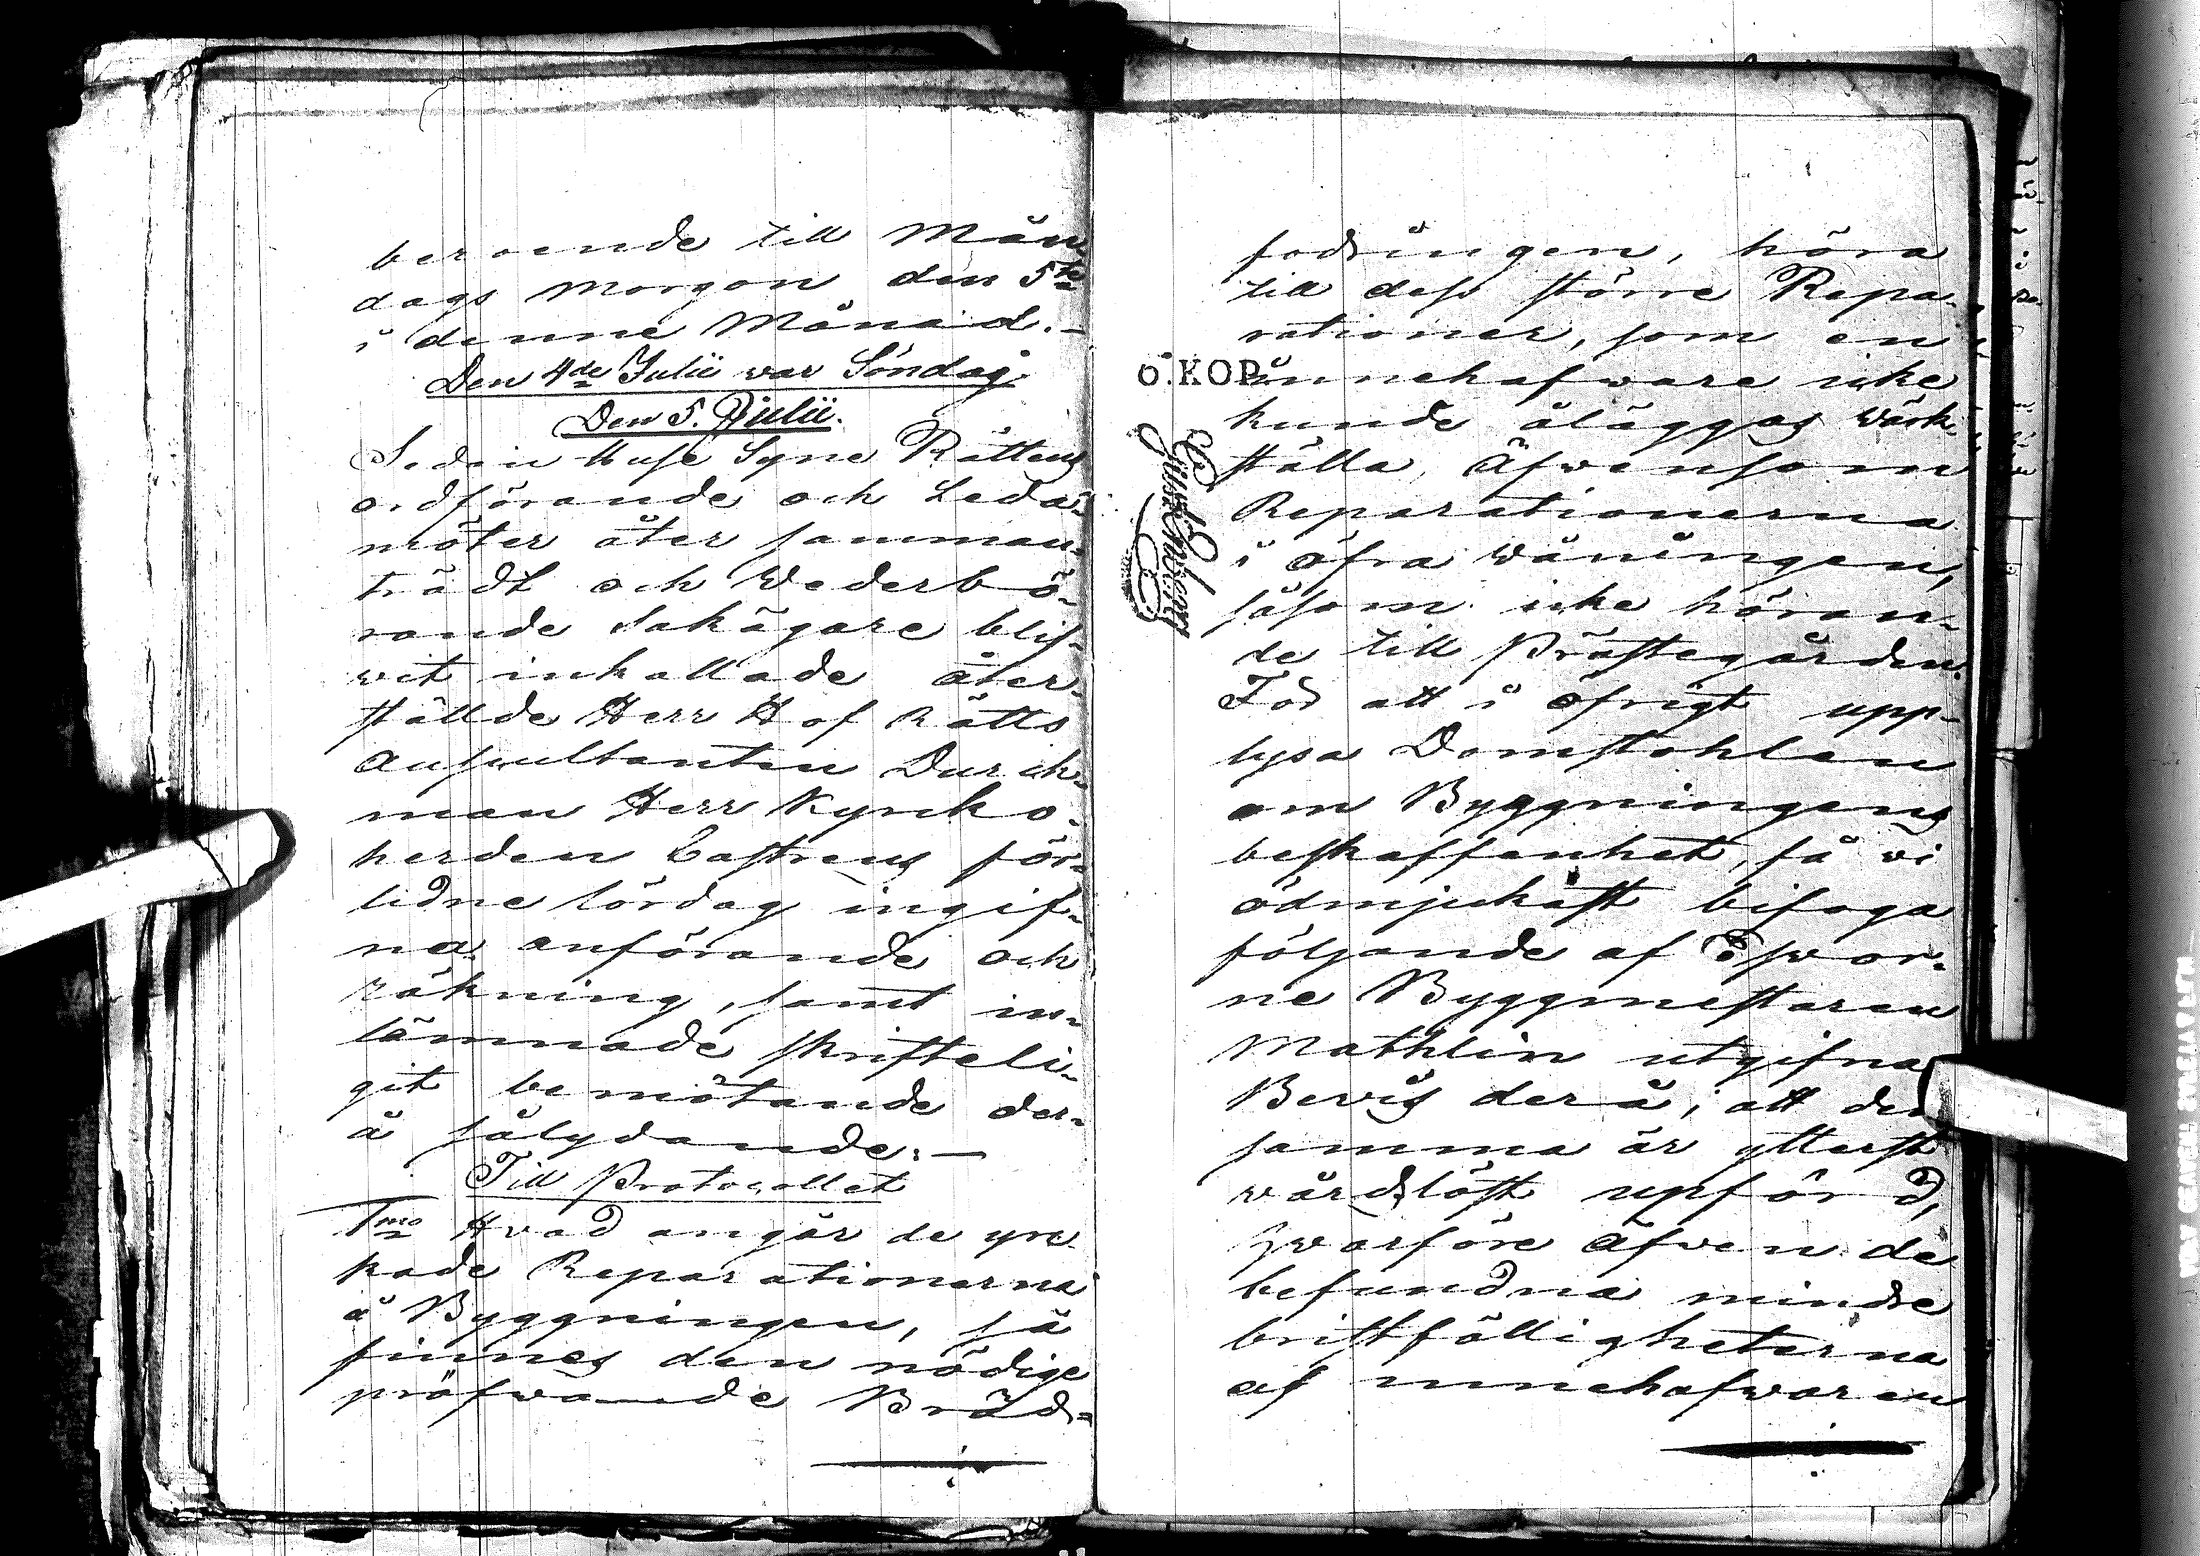 beroende till Mån
dags morgon den 5te
i denne Månad.-
Den 4de Julii war Söndag
Den 5. Julii.
Sedan Huse Syns Rättens
ordförande och Leda-
möter åter samman-
trädt och Wederbö-
rande sakägare blif-
wit inkallade åter-
stållde Herr Hof Rätts
Auscultanten Durch-
man Herr Kyrcko-
herden Castrens för-
lidne lördag ingif-
na anförande och
räkning, samt in-
lämnade skrifteli-
git bemötande der-
å sålydande:—
Till Protocollet
1mo Hvad angår de yrc-
kade Reparationerna
å Byggningen, så
finnes den nödige
pröfwande Bräd-
fodringen, höra
till dess större Repa-
rationer, som en
innehafware icke
kunde åläggas wärk-
ställa, Äfwensom
Reparationerna
i öfra wåningen,
såsom icke höran-
de till Prästegården.
För att i öfrigt upp-
lysa Domstohlen
om Byggningens
beskaffenhet, få wi
ödmjukast bifoga
följande af Edswor-
ne Byggmestaren
Mathlin utgifna
Bevis derå, att den
samma är ytterst
wårdslöst upförd,
hwarföre äfwen de
befundna mindre
bristfälligheterna
af innehafwaren
Ö.KOP.